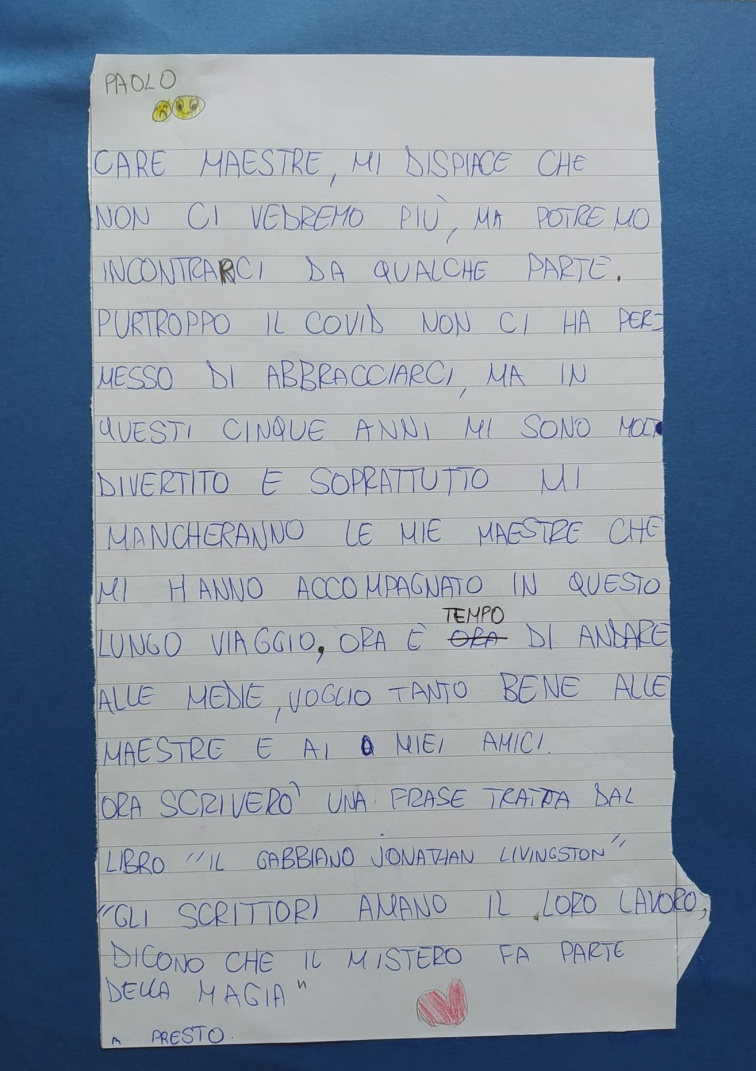 PAOLO
CARE MAESTRE, MI DISPIACE CHE
NON CI VEDREMO PIÙ, MA POTREMO
INCONTRARCI DA QUALCHE PARTE.
PURTROPPO IL COVID NON CI HA PER=
MESSO DI ABBRACCIARCI, MA IN
QUESTI CINQUE ANNI MI SONO MOLTO
DIVERTITO E SOPRATTUTTO MI
MANCHERANNO LE MIE MAESTRE CHE
MI HANNO ACCOMPAGNATO IN QUESTO
TEMPO
LUNGO VIAGGIO, ORA È ORA DI ANDARE
ALLE MEDIE, VOGLIO TANTO BENE ALLE
MAESTRE E AI MIEI AMICI.
ORA SCRIVERO' UNA FRASE TRATTA DAL
LIBRO "IL GABBIANO JONATHAN LIVINGSTON"
"GLI SCRITTORI AMANO IL LORO LAVORO,
DICONO CHE IL MISTERO FA PARTE
DELLA MAGIA"
A PRESTO.